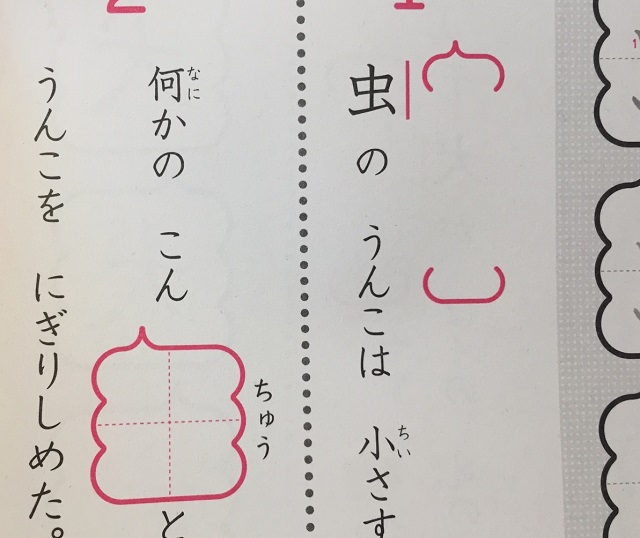 虫の うんこは 小さす
ちい
何かの こん と
なに
ちゅう
うんこを にぎりしめた。